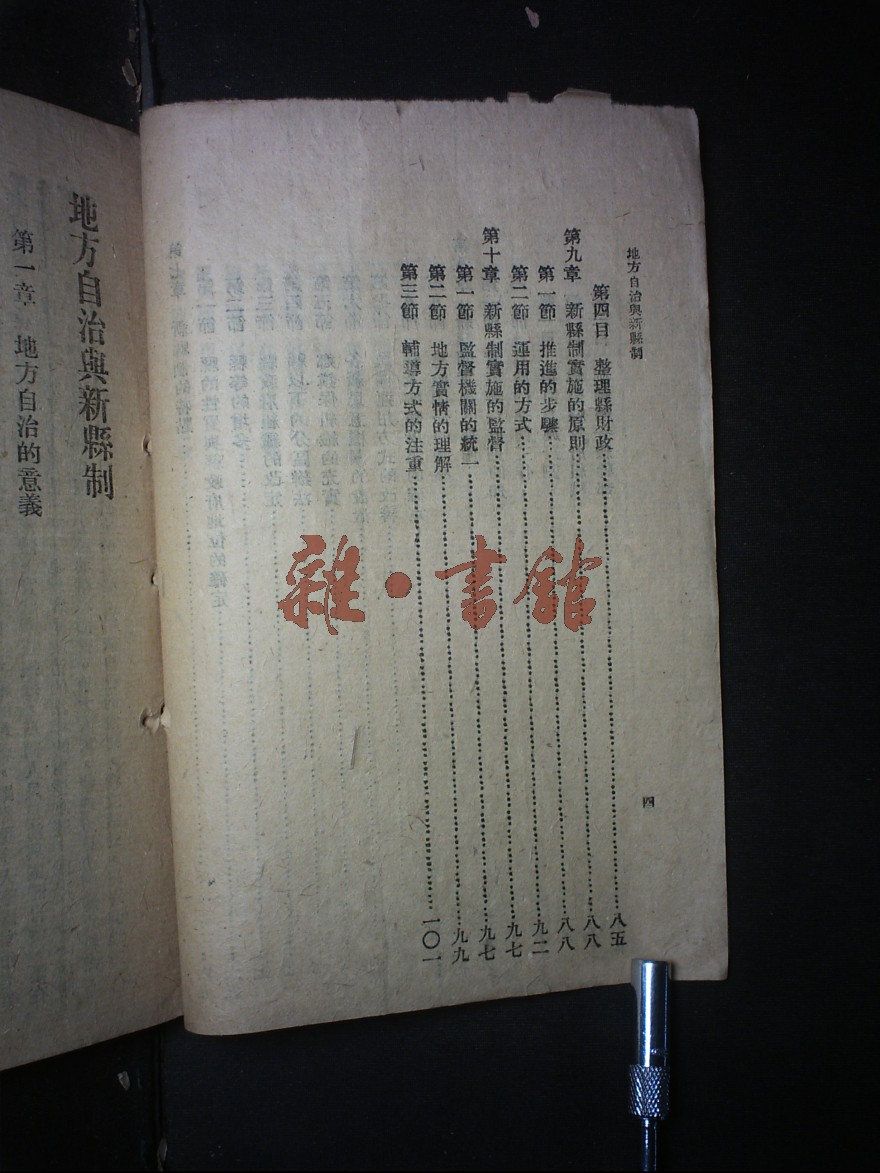 地方自治與新縣制
四
第四目 整理縣財政……八五
第九章 新縣制實施的原則……八八
第一節 推進的步驟……八八
第二節 運用的方式……九二
第十章 新縣制實施的監督……九七
第一節 監督機關的統一……九七
第二節 地方實情的理解……九九
第三節 輔導方式的注重……一〇一
雜·書館
地方自治與新縣制
第一章 地方自治的意義